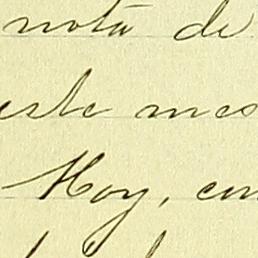 nota de
este mes
Hoy, con